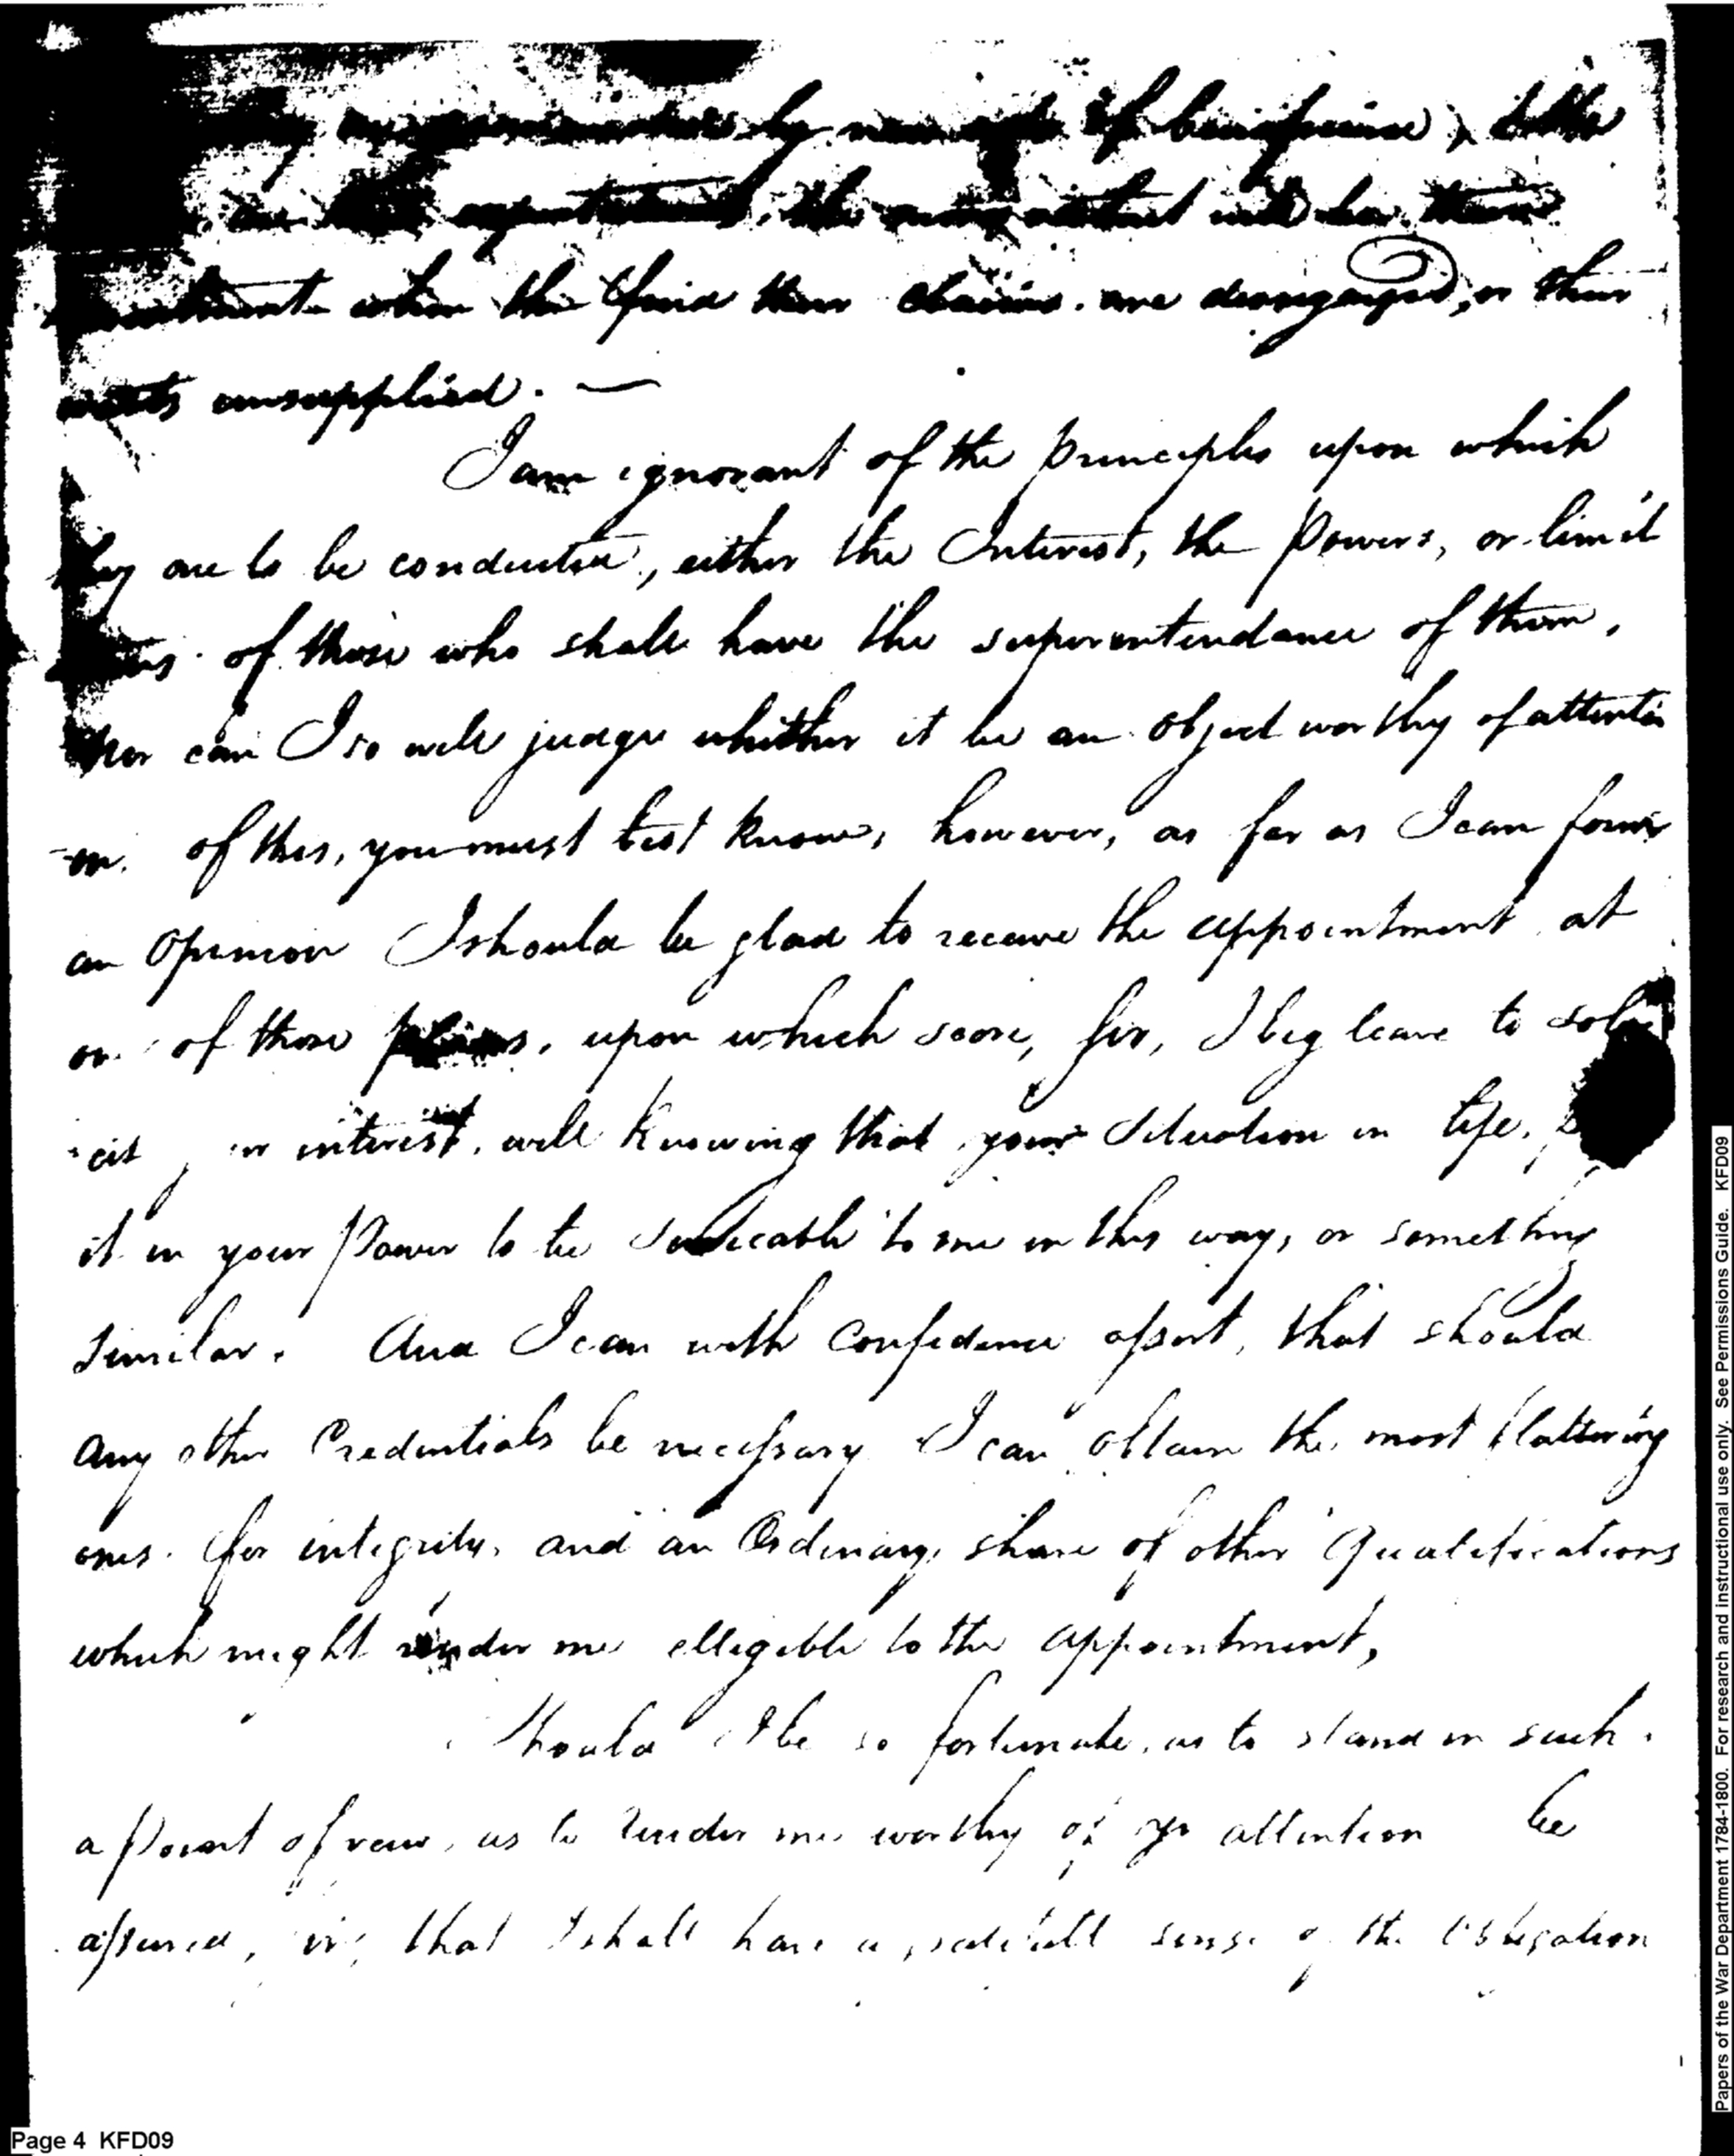 by new acts of beneficience,
the
when the find their chains are disengaged, or their
wants unsupplied. —
I am ignorant of the principles upon which
they are to be conducted, either the Interest, the Powers, or limit
of those who shall have the superintendance of them,
can I so well judge whether it be an Object worthy of attenti
-on. of this, you must best know, however, as far as I can form
an Opinion I should be glad to receive the appointment at
on of those places, upon which score, Sir, I beg leave to soli
cit interest, well knowing that your Situation in life,
it in your Power to be serviceable to me in this way, or something
similar. And I can with Confidence assert, that should
any other Credentials be necessary I can obtain the most flattering
ones. for integrity, and an Ordinary share of other Qualifications
which might render me elligible to the appointment,
Should I be so fortunate, as to stand in such
a Point of view, as to render me worthy of yr attention be
assured, sir, that I shall have a gratefull sense of the Obligation
Page 4 KFD09
Papers of the War Department 1784-1800. For research and instructional use only. See Permissions Guide. KFD09